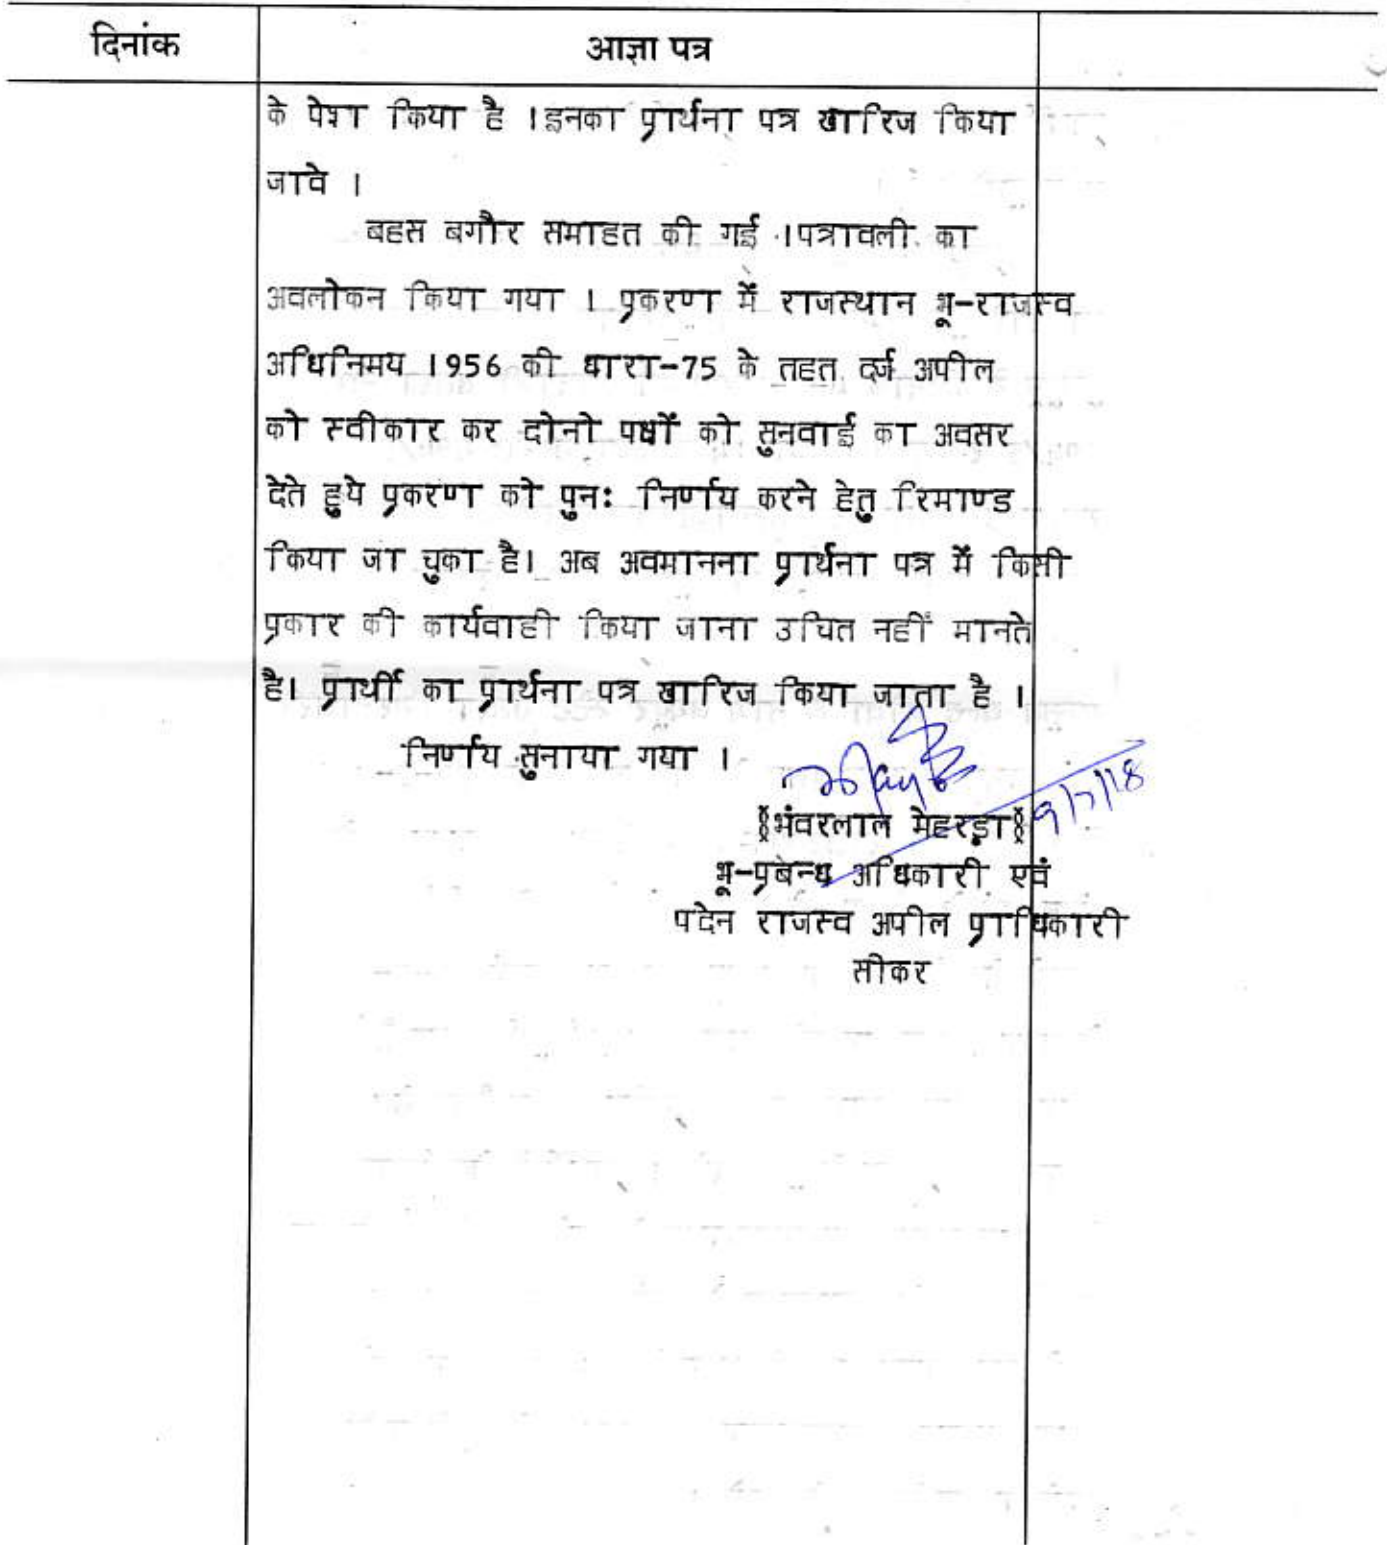 दिनांक आज्ञा पत्र
के पेश किया है ।इनका प्रार्थना पत्र खारिज किया
जावे ।
बहस बगौर समाहत की गई ।पत्रावली का
अवलोकन किया गया । प्रकरण में राजस्थान भू-राजस्व
अधिनिमय 1956 की धारा-75 के तहत दर्ज अपील
को स्वीकार कर दोनो पक्षों को सुनवाई का अवसर
देते हुये प्रकरण को पुनः निर्णय करने हेतु रिमाण्ड
किया जा चुका है। अब अवमानना प्रार्थना पत्र में किसी
प्रकार की कार्यवाही किया जाना उचित नहीं मानते
है। प्रार्थी का प्रार्थना पत्र खारिज किया जाता है ।
निर्णय सुनाया गया ।
9/7/18
भंवरलाल मेहरड़ा
भू-प्रबन्ध अधिकारी एवं
पदेन राजस्व अपील प्राधिकारी
सीकर